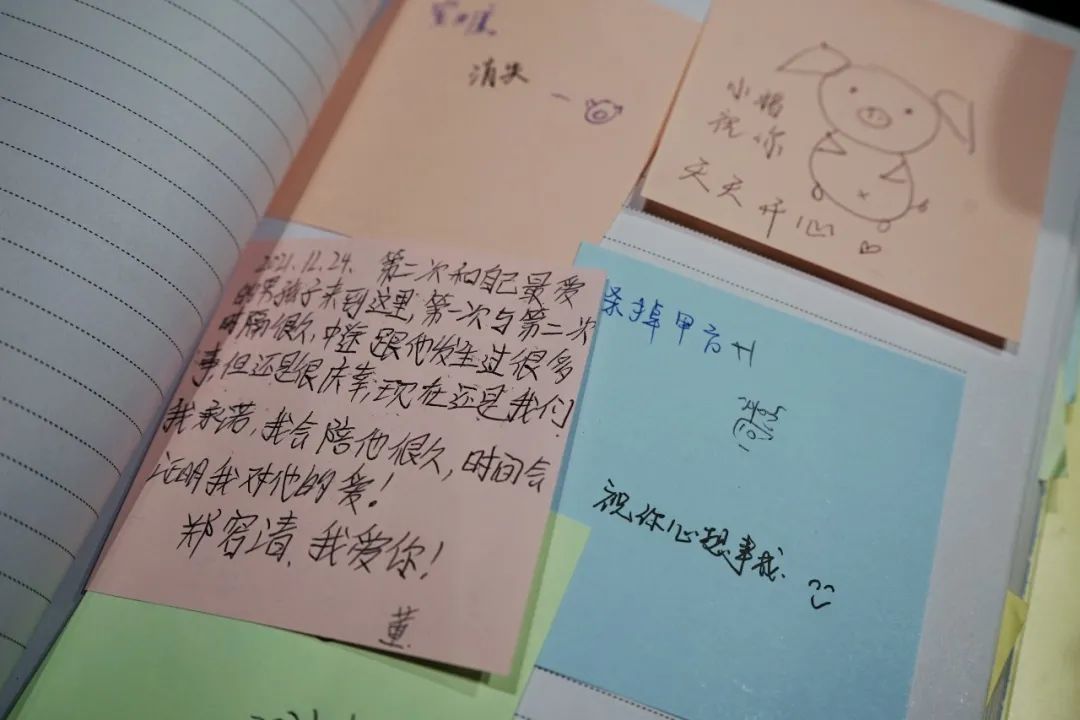 消失
小猪
祝你
天天开心
2021.12.24. 第二次和自己最爱
的男孩子来到这里,第一次与第二次
时隔很久,中途跟他发生过很多
事,但还是很庆幸,现在还是我们
我承诺,我会陪他很久,时间会
证明我对他的爱!
郑容清,我爱你!
董.
杀掉甲方
祝你心想事成.